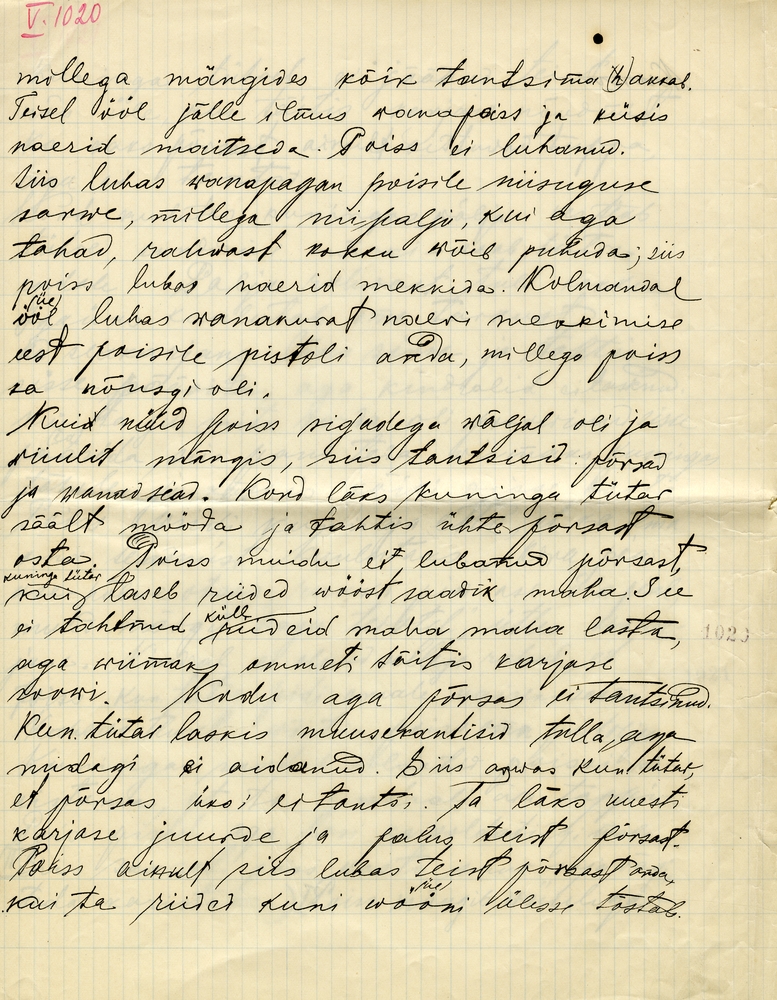 V. 1020
millega mängides kõik tantsima (h)akkab.
Teisel ööl jälle ilmus wanapoiss ja küsis
naerid maitseda. Poiss ei lubanud.
Siis lubas wanapagan poisile niisuguse
sarwe, millega niipalju, kui aga
tahad, rahwast kokku wõib puhuda; siis
poiss lubas naerid mekkida. Kolmandal
(üe)
ööl lubas wanakurat naeri mekkimise
eest poisile pistoli anda, millega poiss
ka nõusgi oli.
Kuid nüüd poiss sigadega wäljal oli ja
wiiulit mängis, siis tantsisid põrsad
ja wanad sead. Kord läks kuninga tütar
säält mööda ja tahtis ühte põrsast
osta. Poiss muidu ei lubanud põrsast,
kuninga tütar
kui laseb riided wööst saadik maha. See
küll
ei tahtnud riideid maha maha lasta,
aga wiimaks ommeti täitis karjase
soowi. Kodu aga põrsas ei tantsinud.
Kun. tütar laskis muusekantisid tulla, aga
midagi ei aidanud. Siis arwas kun. tütar,
et põrsas üksi ei tantsi. Ta läks uuesti
karjase juurde ja palus teist põrsast.
Poiss siis lubas teist põrsast anda,
(üe)
kui ta riided kuni wööni ülesse tõstab.
1020